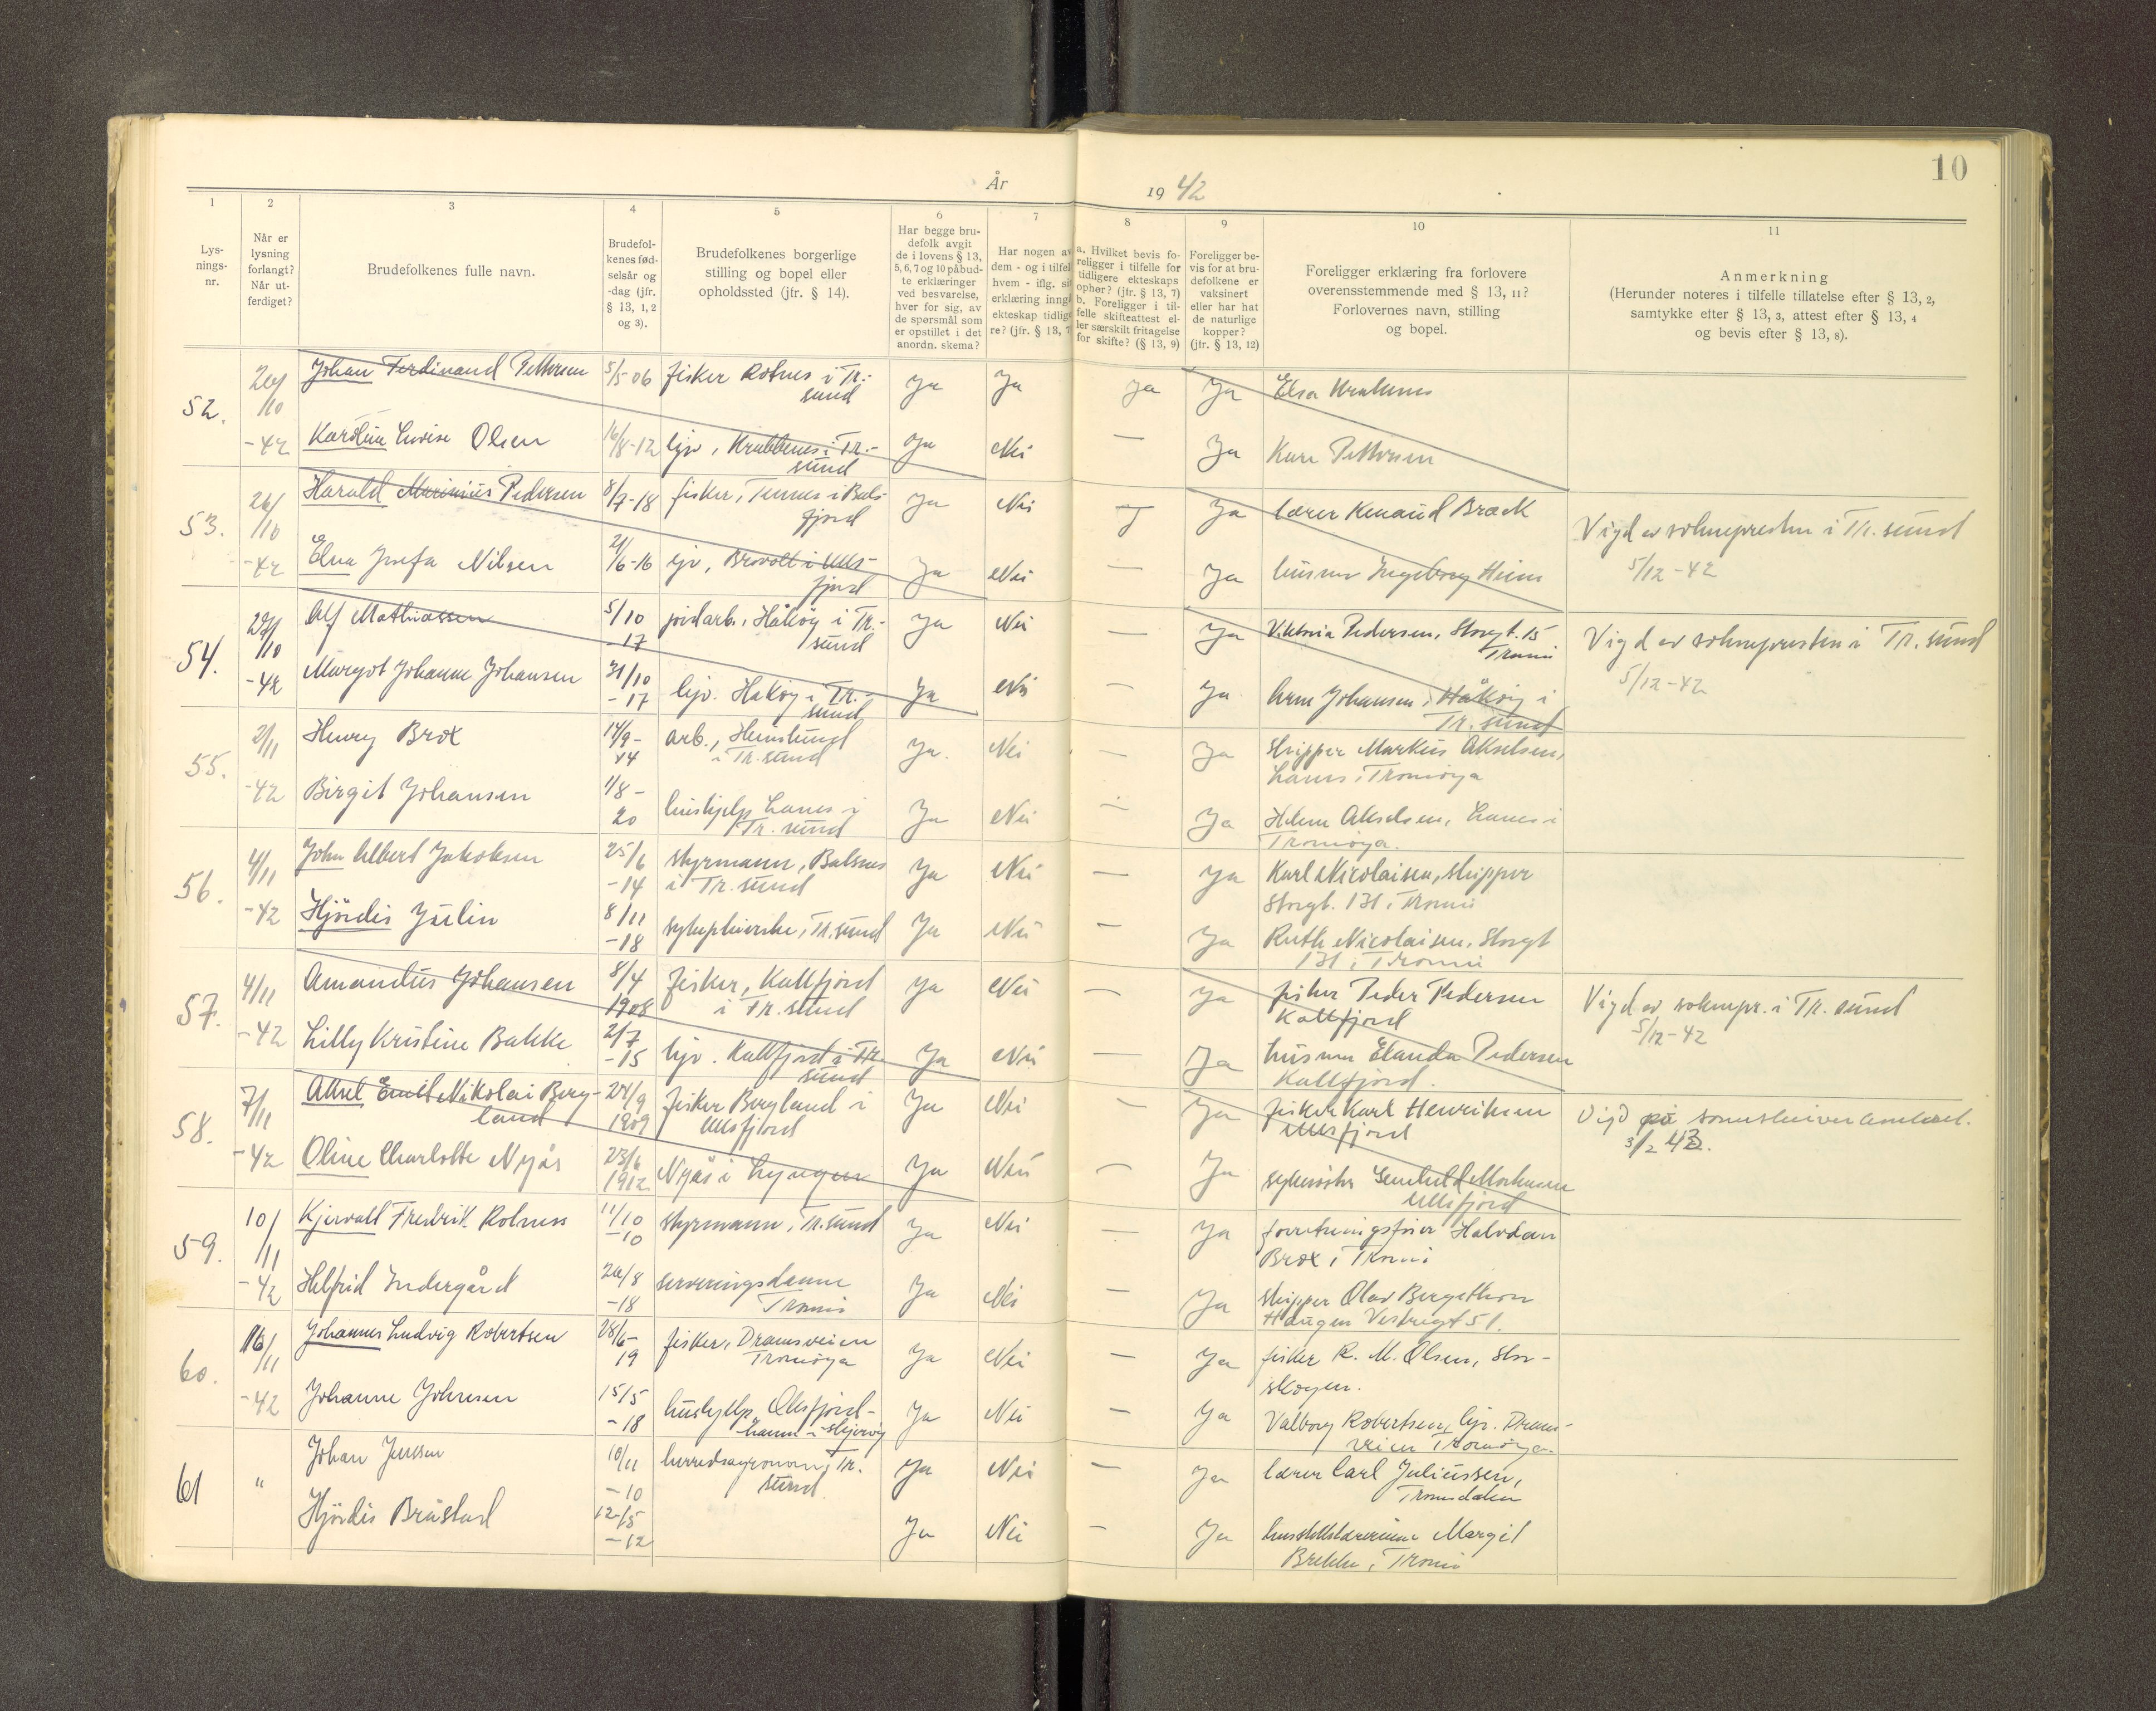 10
År 1942
1 2 3 4 5 6 7 8 9 10 11
Lys-
nings-
nr.
Når er
lysning
forlangt?
Når ut-
ferdiget?
Brudefolkenes fulle navn.
Brudefol-
kenes fød-
selsår og
-dag (jfr.
§ 13, 1, 2
og 3).
Brudefolkenes borgerlige
stilling og bopel eller
opholdssted (jfr. § 14).
Har begge bru-
defolk avgit
de i lovens § 13,
5, 6, 7 og 10 påbud-
te erklæringer
ved besvarelse,
hver for sig, av
de spørsmål som
er opstillet i det
anordn. skema?
Har nogen av
dem - og i tilfel
hvem - iflg. si
erklæring inng
ekteskap tidlig
re? (jfr. § 13, 7
a. Hvilket bevis fo-
religger i tilfelle for
tidligere ekteskaps
ophør? (jfr. § 13, 7)
b. Foreligger i til-
felle skifteattest el-
ler særskilt fritagelse
for skifte? (§ 13, 9)
Foreligger be-
vis for at bru-
defolkene er
vaksinert
eller har hat
de naturlige
kopper?
(jfr. § 13, 12)
Foreligger erklæring fra forlovere
overensstemmende med § 13, 11?
Forlovernes navn, stilling
og bopel.
Anmerkning
(Herunder noteres i tilfelle tillatelse efter § 13, 2,
samtykke efter § 13, 3, attest efter § 13, 4
og bevis efter § 13, 8).
52. 26/10 -42
Johan Ferdinand Pettersen 5/5-06 fisker i Tr.-
sund Ja Ja Ja Ja Elsa
Karoline Lovise Olsen 16/8-12 hjv, i Tr.-
sund Ja Nei — Ja Kare Pettersen
53. 26/10 -42
Harald Marinius Pedersen 8/7-18 fisker, Tennes i Bals-
fjord Ja Nei Ja lærer Bræck
Elna Josefa Nilsen 21/6-16 hjv, i Ulls-
fjord Ja Nei — Ja husmor Ingeborg Heim
Vigd av soknepresten i Tr. sund
5/12-42
54. 27/10 -42
Alf Mathiassen 5/10
17 jordarb., Håkøy i Tr.-
sund Ja Nei — Ja Viktoria Pedersen, Storgt. 15
Tromsø
Margot Johanne Johansen 31/10
-17 hjv. Håkøy i Tr.-
sund Ja Nei — Ja Arne Johansen, Håkøy i
Tr. sund
Vigd av soknepresten i Tr. sund
5/12-42
55. 2/11 -42
Henry Brox 14/9-
14 arb.,
i Tr. sund Ja. Nei — Ja skipper Markus Akselsen,
i Tromsøya
Birgit Johansen 1/8-
20 hushjelp i
Tr. sund Ja Nei — Ja Helene Akselsen, i
Tromsøya.
56. 4/11 -42
John Albert Jakobsen 25/6
-14 styrmann, Balsnes
i Tr. sund Ja Nei — Ja Karl Nicolaisen, skipper
Storgt. 131, Tromsø
Hjördis Julin 8/11
-18 sykepleierske, Tr. sund Ja Nei — Ja Ruth Nicolaisen, Storgt
131, Tromsø
57. 4/11 -42
Amandus Johansen 8/4
1908 fisker, Kattfjord
i Tr. sund Ja Nei — Ja fisker Peder Pedersen
Kattfjord
Lilly Kristine Bakke 2/7
-15 hjv. Kattfjord i Tr.
sund Ja Nei — Ja husmor Elanda Pedersen
Kattfjord.
Vigd av soknepr. i Tr. sund
5/12-42
58. 7/11 -42
Aksel Emil Nikolai Berg-
land 24/9
1909 fisker Bergland i
Ullsfjord Ja Nei Ja fisker Karl Henriksen
Ullsfjord
Oline Charlotte Nyås 23/6
1912 Nyås i Lyngen Ja Nei — Ja
Ullsfjord
Vigd på sorenskriverembetet.
3/2 43.
59. 10/11 -42
Kjervald Fredrik 11/10
-10 styrmann, Tr. sund Ja Nei — Ja forretningsfører Halvdan
Brox, Tromsø
Helfrid Indergård 26/8
-18 serveringsdame
Tromsø Ja Nei — Ja skipper Olav Bergethon
Haugen Vestregt 51.
60. 16/11 -42
Johannes Ludvig Robertsen 28/6-
19 fisker, Dramsveien
Tromsøya Ja Nei — Ja fisker R. M. Olsen, Stor-
skogen.
Johanne Johnsen 15/5
-18 hushjelp,
i Skjervøy Ja Nei — Ja Valborg Robertsen, hjv. Drams-
veien Tromsøya.
61 "
Johan Jenssen 10/11
-10 herredsagronom, Tr.
sund Ja Nei — Ja lærer Carl Juliussen,
Tromsdalen
Hjördis Bråstad 12/5
-12 Ja Nei — Ja husstellslærerinne Margit
Brekke, Tromsø